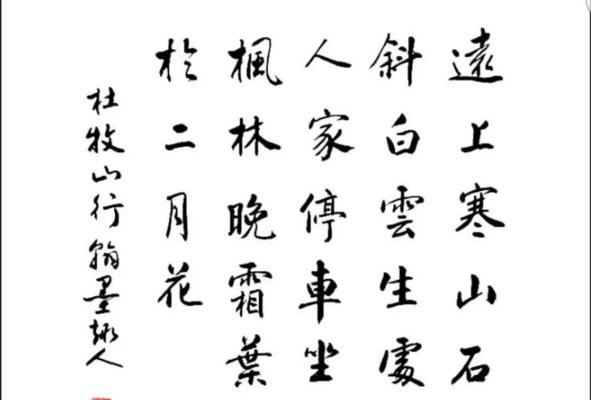 遠上寒山石
斜白雲生處
人家停車坐
楓林晚霜葉
於二月花
杜牧山行翰墨趣人